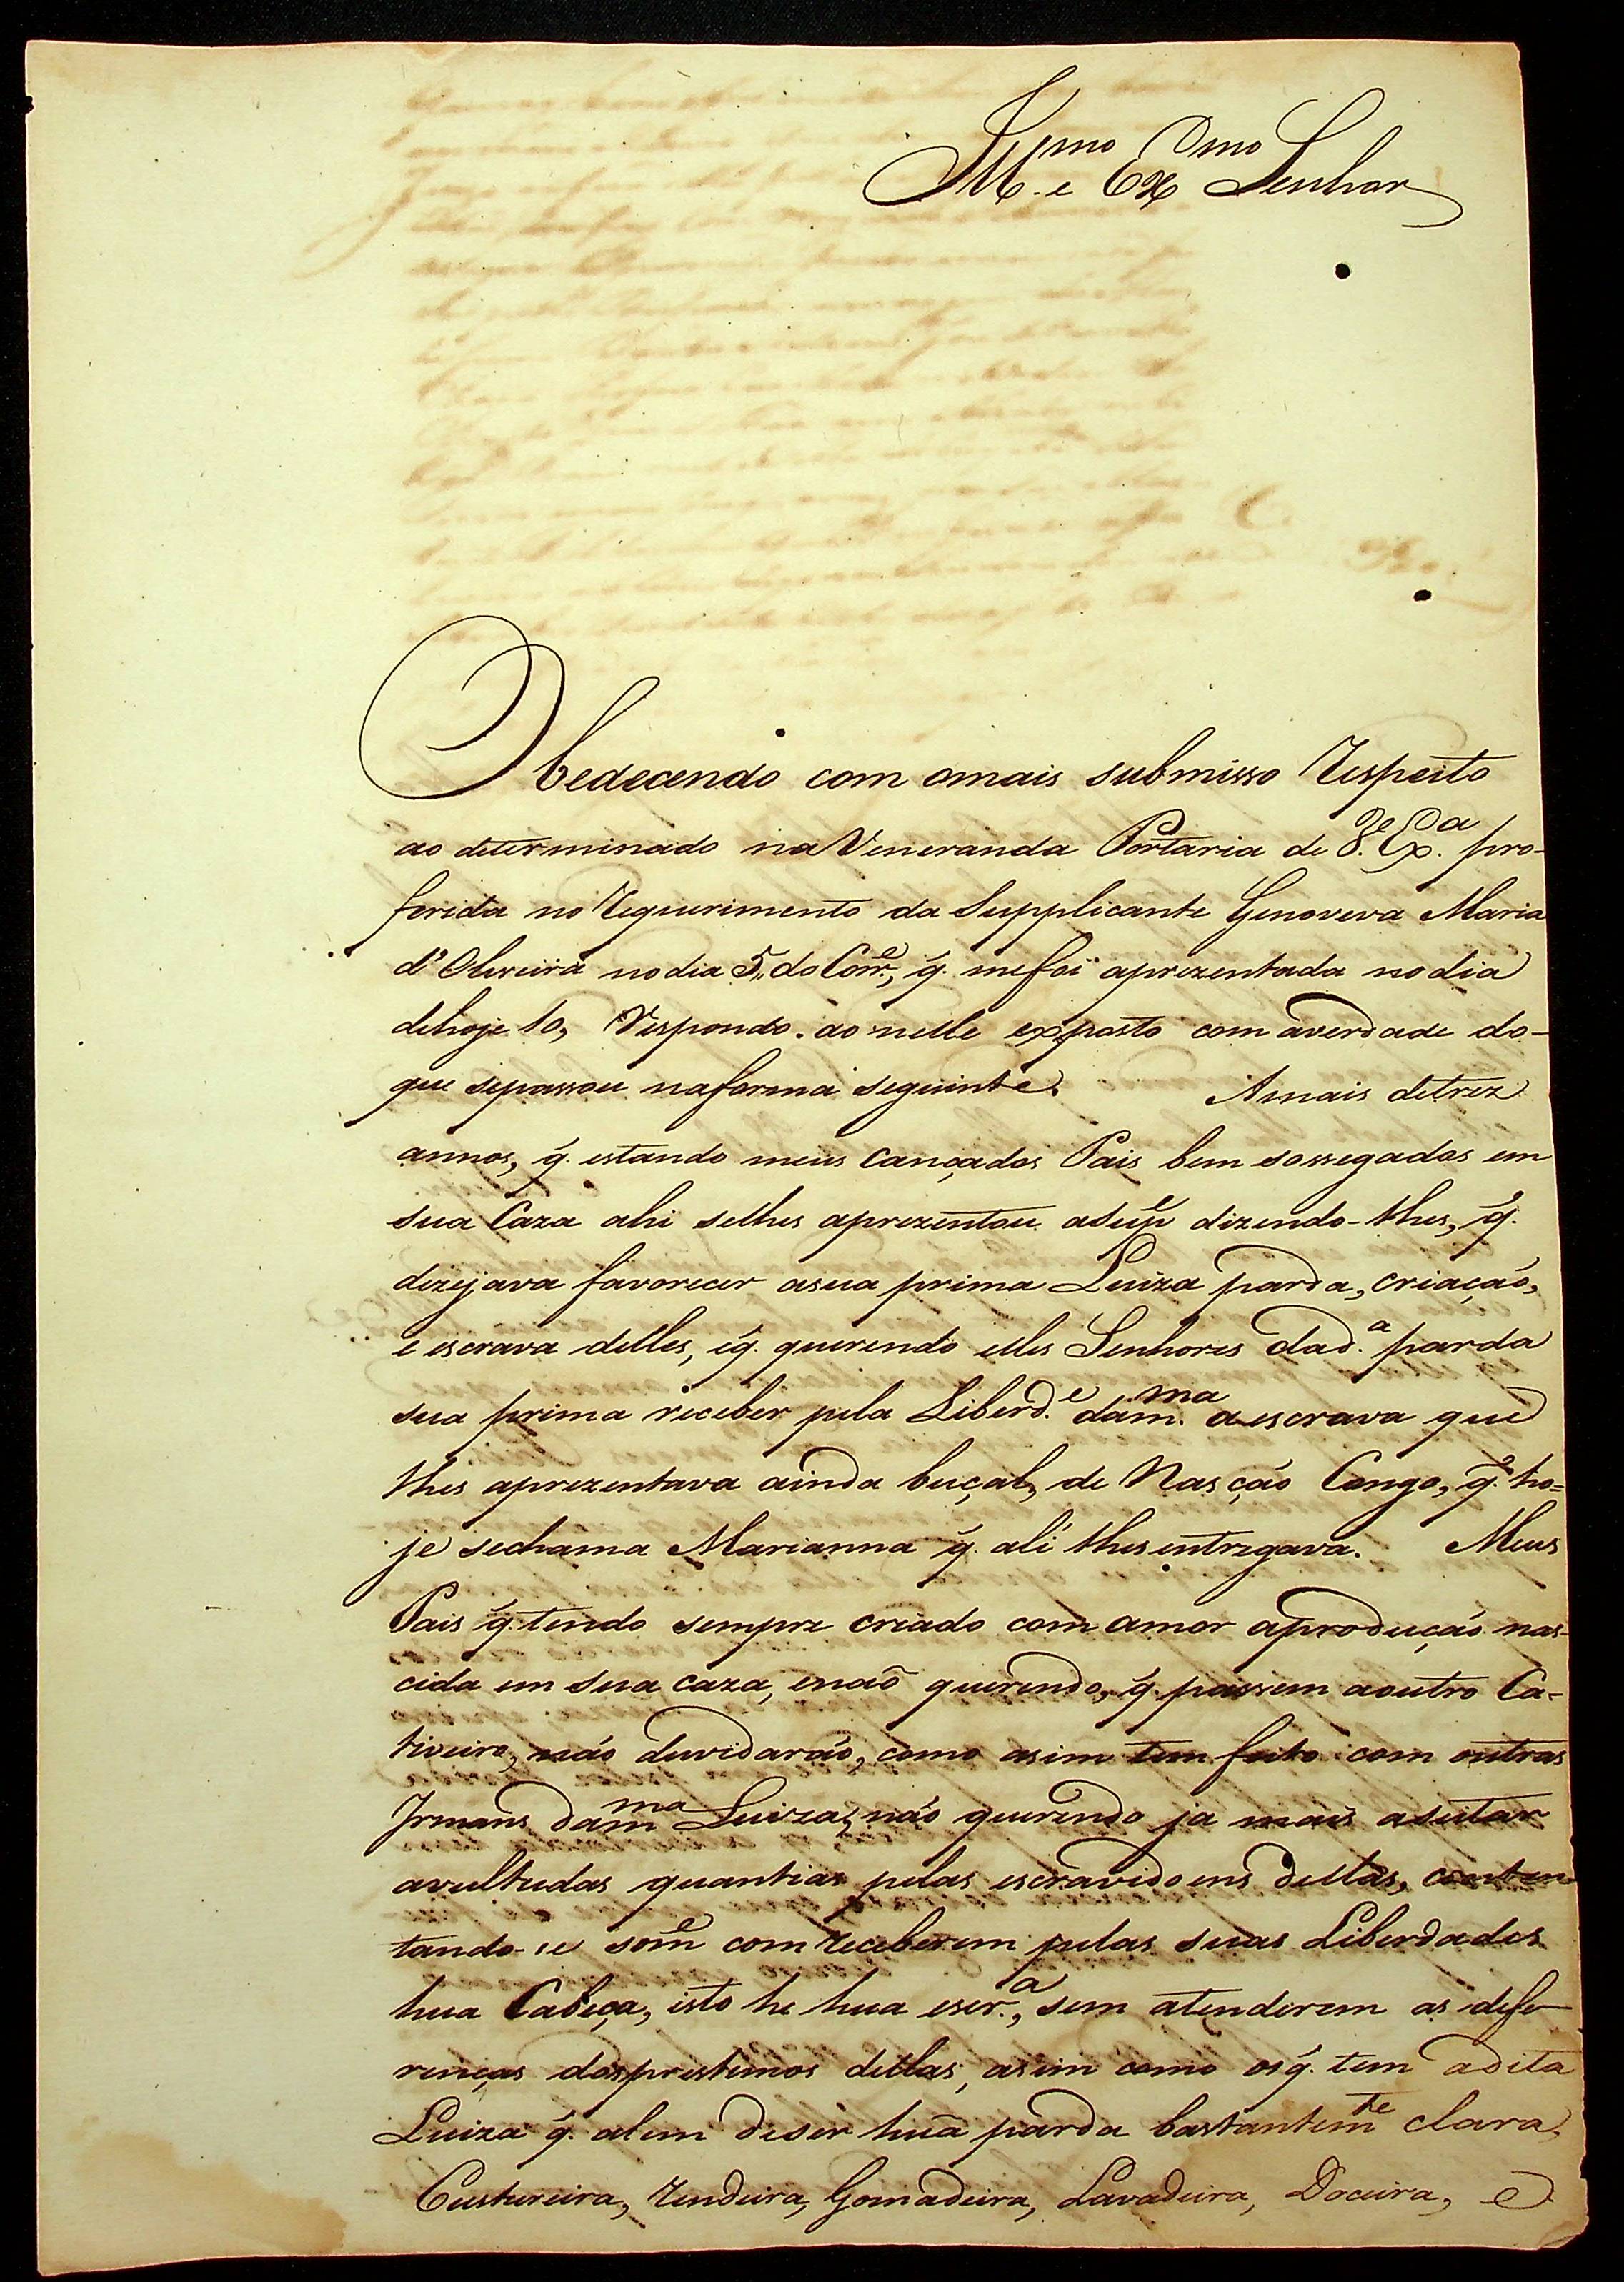 Illmo e Exmo Senhor
Obedecendo com omais submisso Respeito
ao determinado na Veneranda Portaria de V.ª Ex.ª pro-
ferida no Requerimento da Supplicante Genoveva Maria
d'Oliveira no dia 5,, do Corr.e, q̃. mefoi aprezentada nodia
dehoje 10, Respondo ao nelle exposto com averdade do-
que sepassou naforma seguinte. Amais detrez
annos, q̃. estando meus cançados Pais bem sossegados em
sua Caza ahi selhes aprezentou asupe dizendo-lhes, q̃.
dezejava favorecer asua prima Luiza parda, criação,
e escrava delles, eq̃. querendo elles Senhores dad.a parda
sua prima receber pela Liberd.e dam.ma a escrava que
lhes aprezentava ainda buçal, de Nasção Congo, q̃. ho=
je sechama Marianna q̃. alí lhes entregava. Meus
Pais q̃. tendo sempre criado com amor aprodução nas-
cida em sua caza, enaõ querendo, q̃. passem aoutro Ca-
tiveiro, não duvidarão, como asim tem feito com outras
Irmans damma Luiza, não querendo ja mais
avultudas quantias pelas escravidoens dellas, conten
tando-se some com receberem pelas suas Liberdades
hua Cabeça, isto he hua escr.a, sem atenderem as defe-
renças dosprestimos dellas, asim como osq̃. tem adita
Luiza q̃. alem deser huã parda bastantemte clara,
Custureira, Rendeira, Gomadeira, Lavadeira, Doceira, e